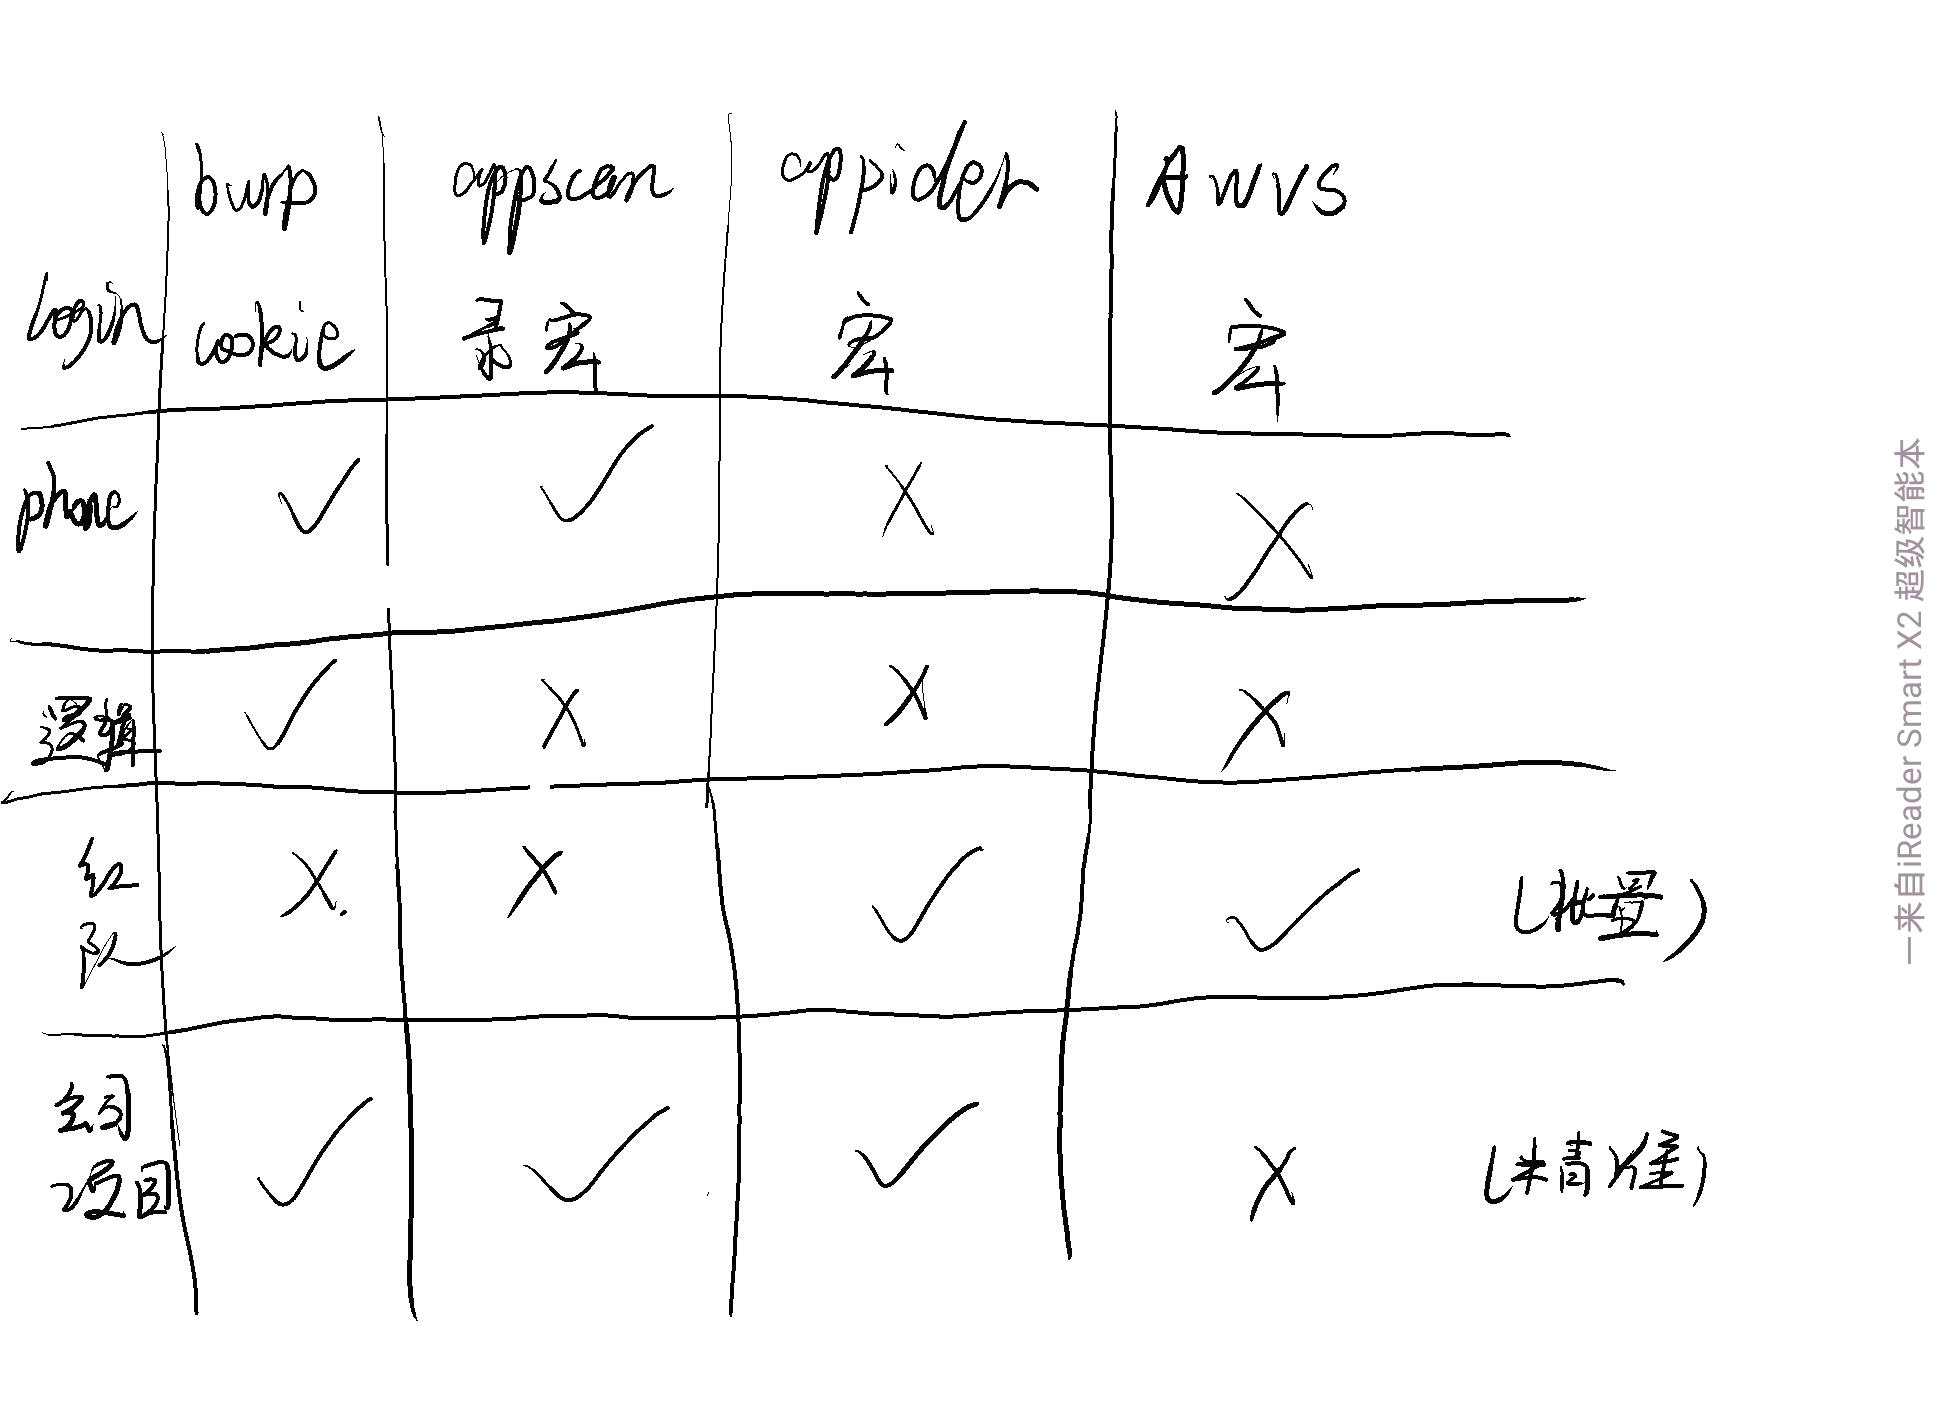 burp appscan appider AWVS
login cookie 录宏 宏 宏
phone ✓ ✓ X X
逻辑 ✓ X X X
红队 X. X ✓ ✓ (批量)
公司
项目 ✓ ✓ ✓ X (精准)
一来自iReader Smart X2 超级智能本